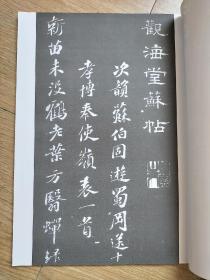 觀海堂蘇帖
次韻蘇伯固遊蜀岡送
孝博奉使嶺表一首
新苗未沒鶴老葉方翳蟬